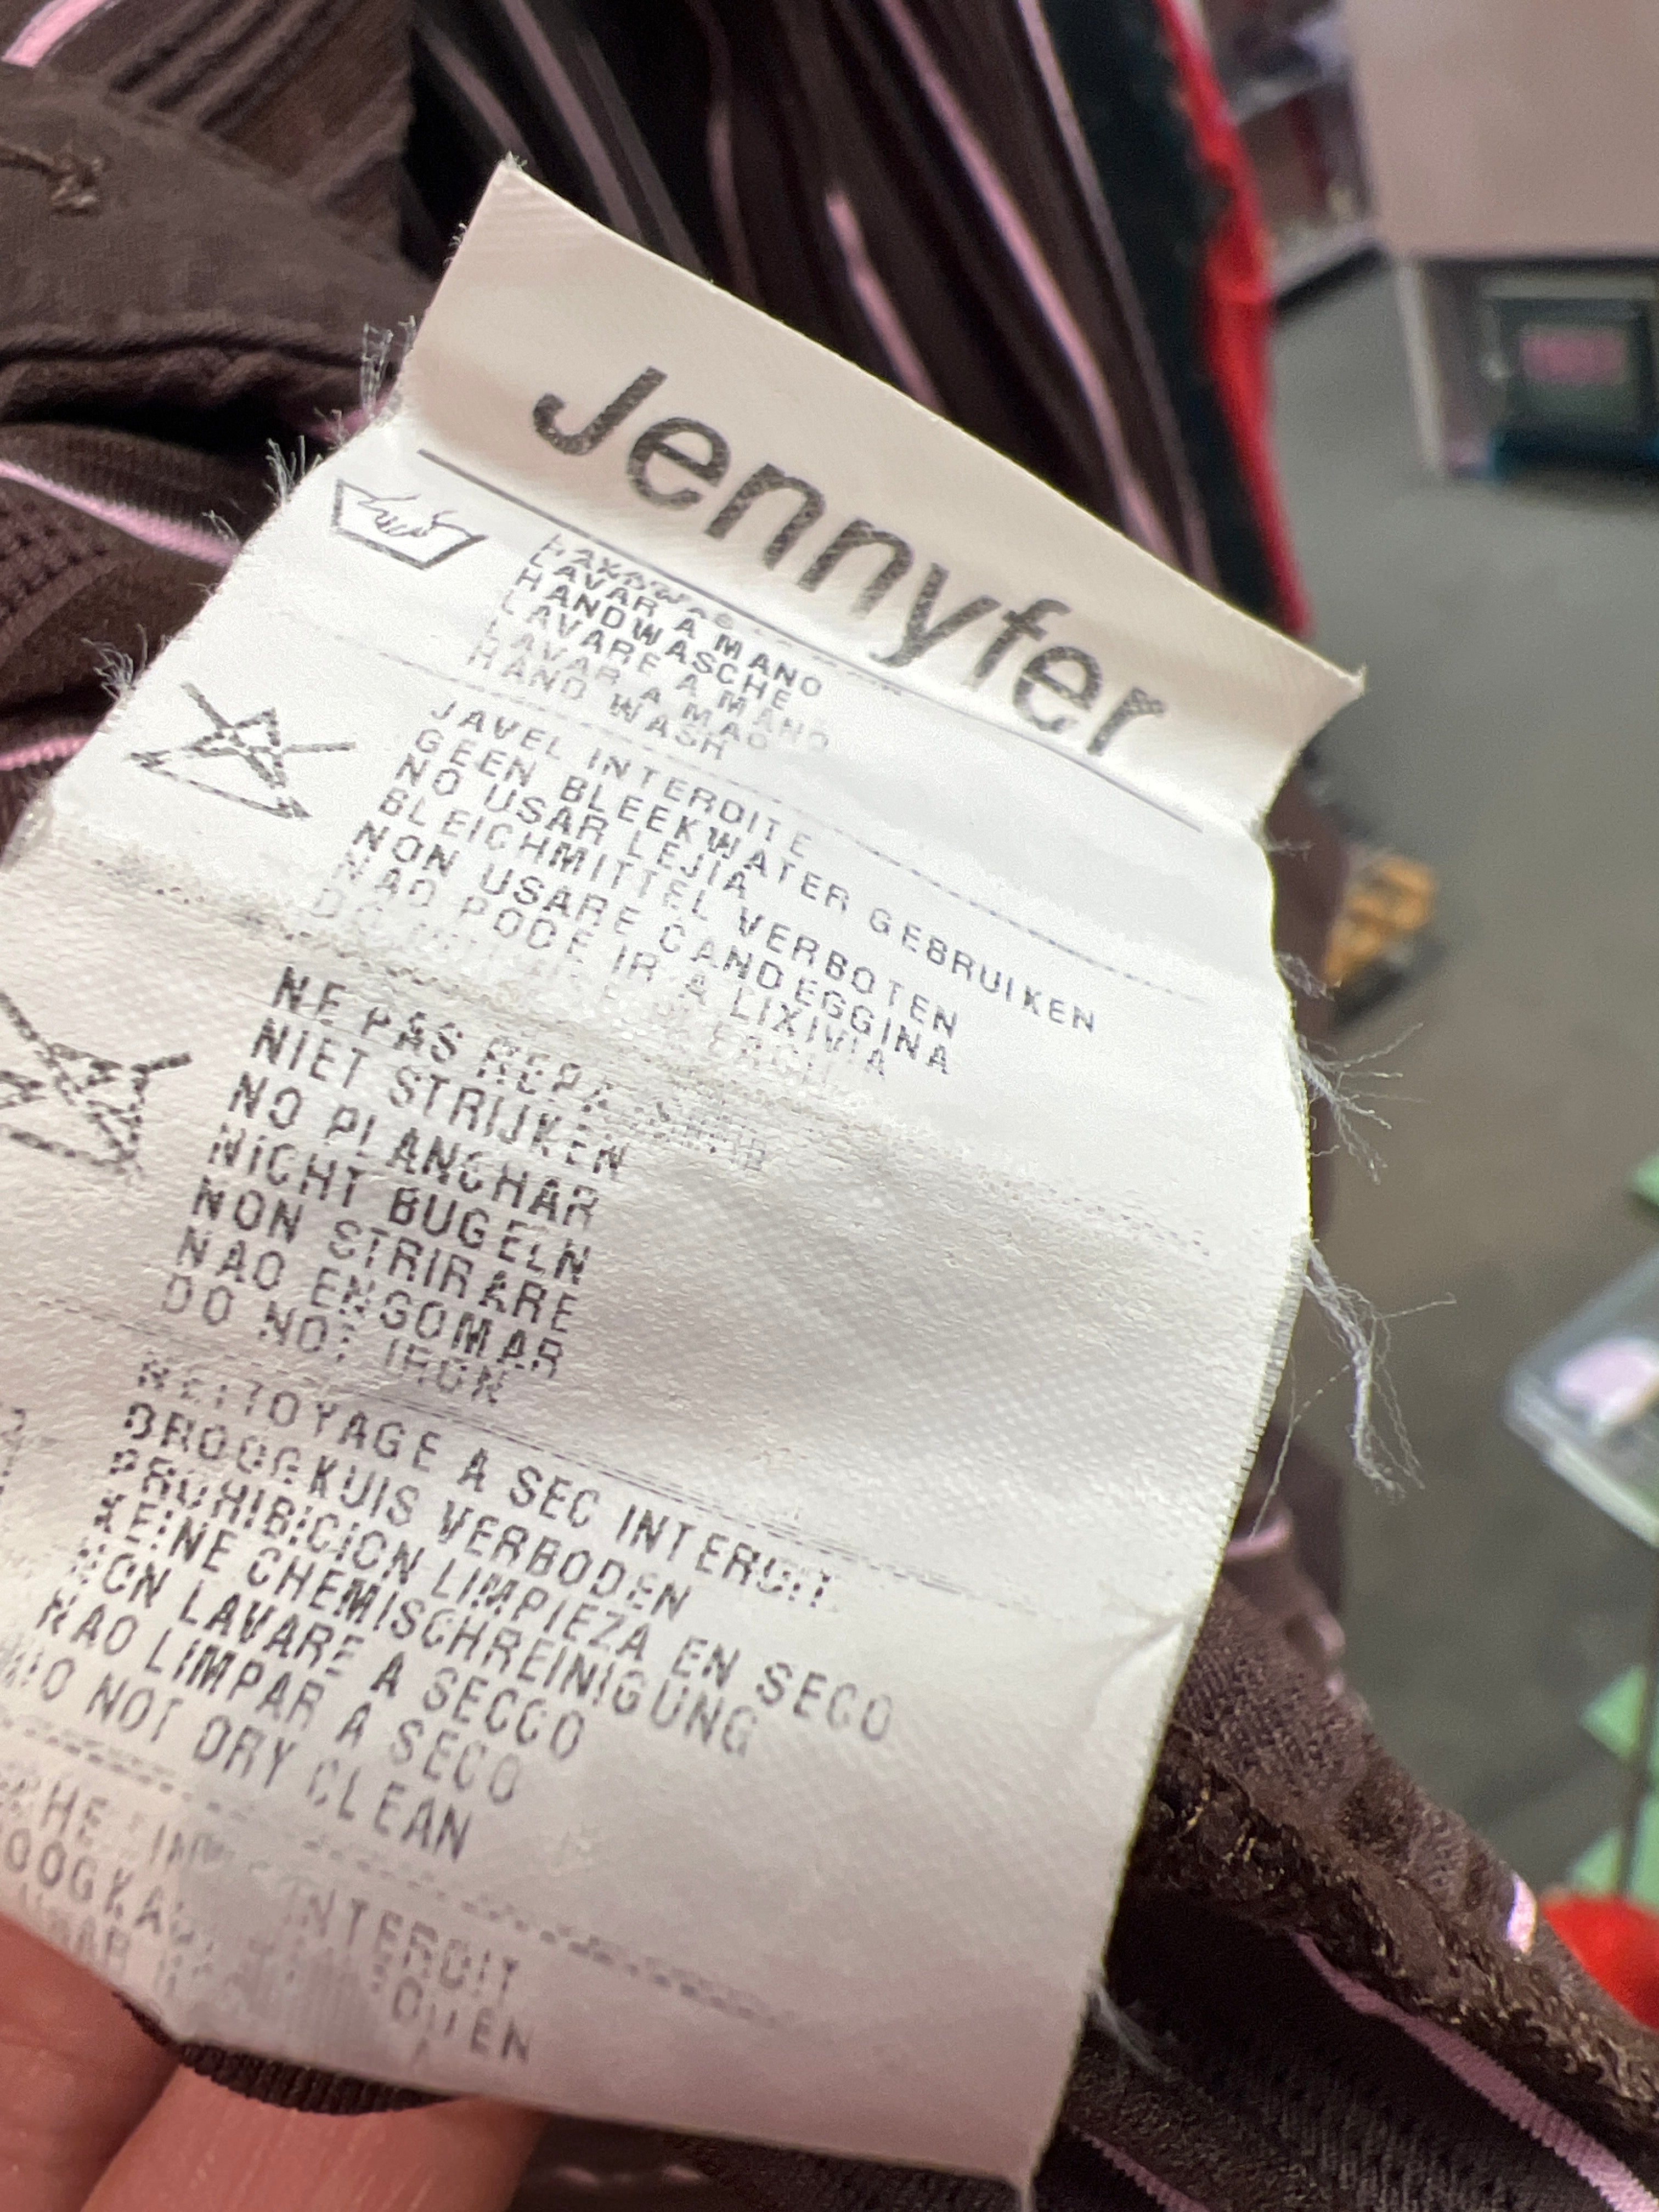 Jennyfer
LAVAR A MANO
HANDWASCHE
LAVARE A MANO
LAVAR A MAO
HAND WASH
JAVEL INTERDITE
GEEN BLEEKWATER GEBRUIKEN
NO USAR LEJIA
BLEICHMITTEL VERBOTEN
NON USARE CANDEGGINA
NAO PODE IR A LIXIVIA
NE PAS
NIET STRIJKEN
NO PLANCHAR
NICHT BUGELN
NON STRIRARE
NAO ENGOMAR
DO NOT IRON
NETTOYAGE A SEC INTERDIT
DROOGKUIS VERBODEN
PROHIBICION LIMPIEZA EN SECO
KEINE CHEMISCHREINIGUNG
NON LAVARE A SECCO
NAO LIMPAR A SECO
DO NOT DRY CLEAN
INTERDIT